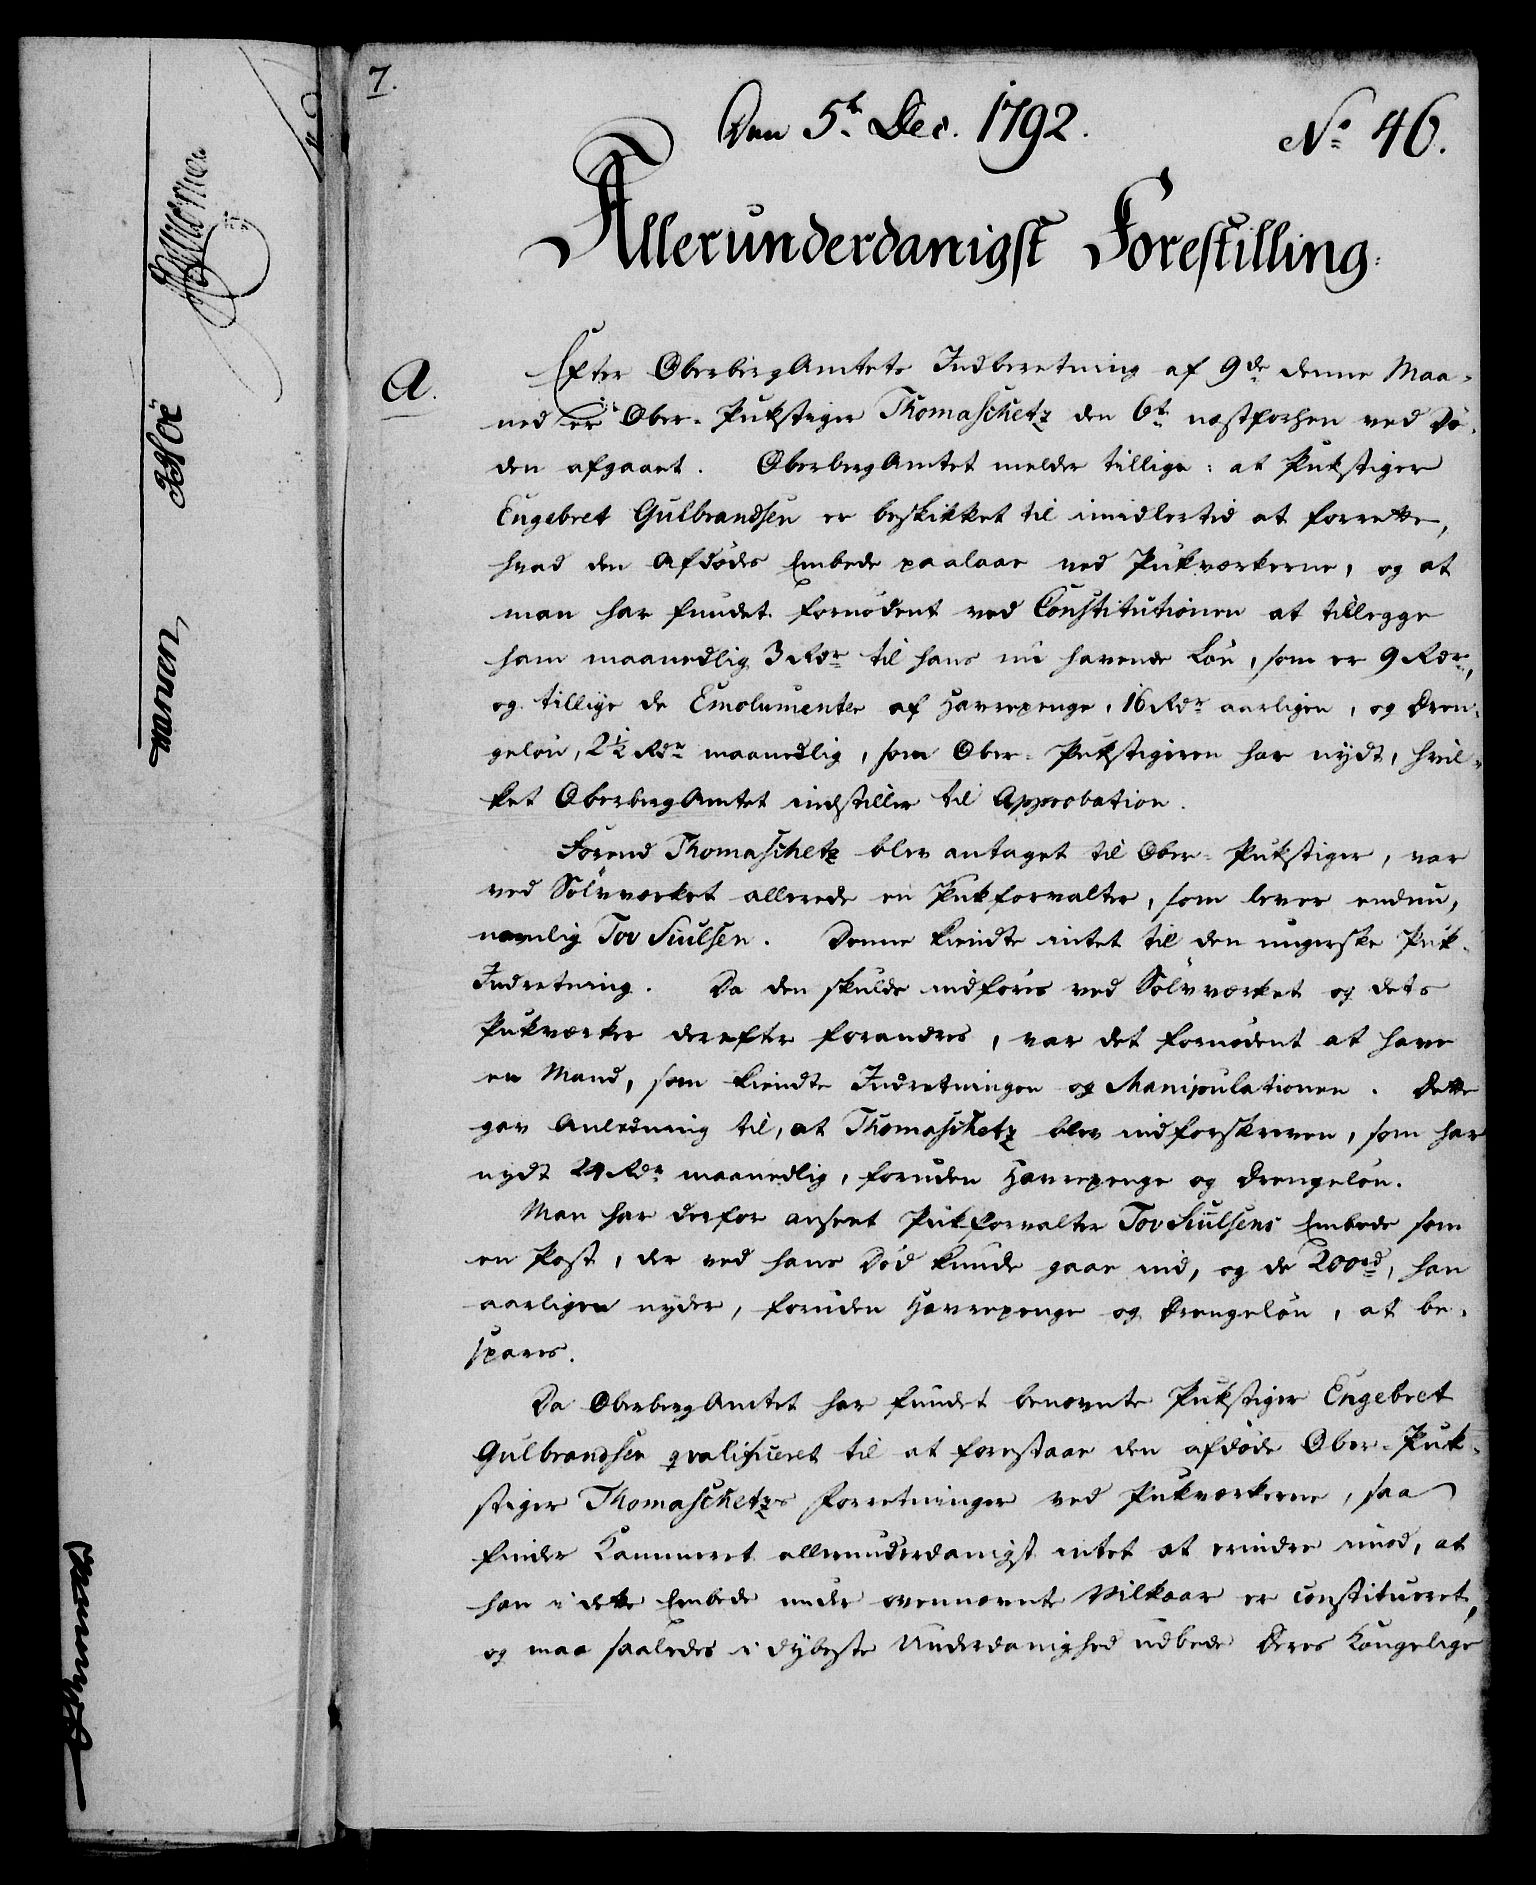 7.
Den 5t Dec. 1792.
No 46.
Allerunderdanigst Forestilling.
A.
Efter OberbergAmtets Indberetning af 9de denne Maa-
ned er Ober-Pukstiger Thomaschetz den 6t næstforhen ved Dø-
den afgaaet. OberbergAmtet melder tillige: at Pukstiger
Engebret Gulbrandsen er beskikket til imidlertid at forrette,
hvad den Afdødes Embede paalaae ved Pukværkerne, og at
man har fundet fornødent ved Constitutionen at tillegge
ham maanedlig 3 Rdr til hans nu havende Løn, som er 9 Rdr,
og tillige de Emolumenter af Havrepenge, 16 Rdr aarligen, og Dren-
geløn, 2½ Rdr maanedlig, som Ober-Pukstigeren har nydt, hvil-
ket OberbergAmtet indstiller til Approbation.
Førend Thomaschetz blev antaget til Ober-Pukstiger, var
ved Sølvværket allerede en Pukforvalter, som lever endnu,
nemlig Tov Siulsen. Denne kiendte intet til den ungerske Puk-
Indretning. Da den skulde indføres ved Sølvværket og dets
Pukværker derefter forandres, var det fornødent at have
en Mand, som kiendte Indretningen og Manipulationen. Dette
gav Anledning til, at Thomaschetz blev indforskreven, som har
nydt 24 Rdr maanedlig, foruden Havrepenge og Drengeløn.
Man har derfor anseet Pukforvalter Tov Siulsens Embede som
en Post, der ved hans Død kunde gaae ind, og de 200rd, han
aarligen nyder, foruden Havrepenge og Drengeløn, at be-
spares.
Da OberbergAmtet har fundet benævnte Pukstiger Engebret
Gulbrandsen qvalificeret til at forestaae den afdøde Ober-Puk-
stiger Thomaschetzs Forretninger ved Pukværkerne, saa
finder Kammeret allerunderdanigst intet at erindre imod, at
han i dette Embede under ovennævnte Vilkaar er constitueret,
og maa saaledes i dybeste Underdanighed udbede Deres Kongelige